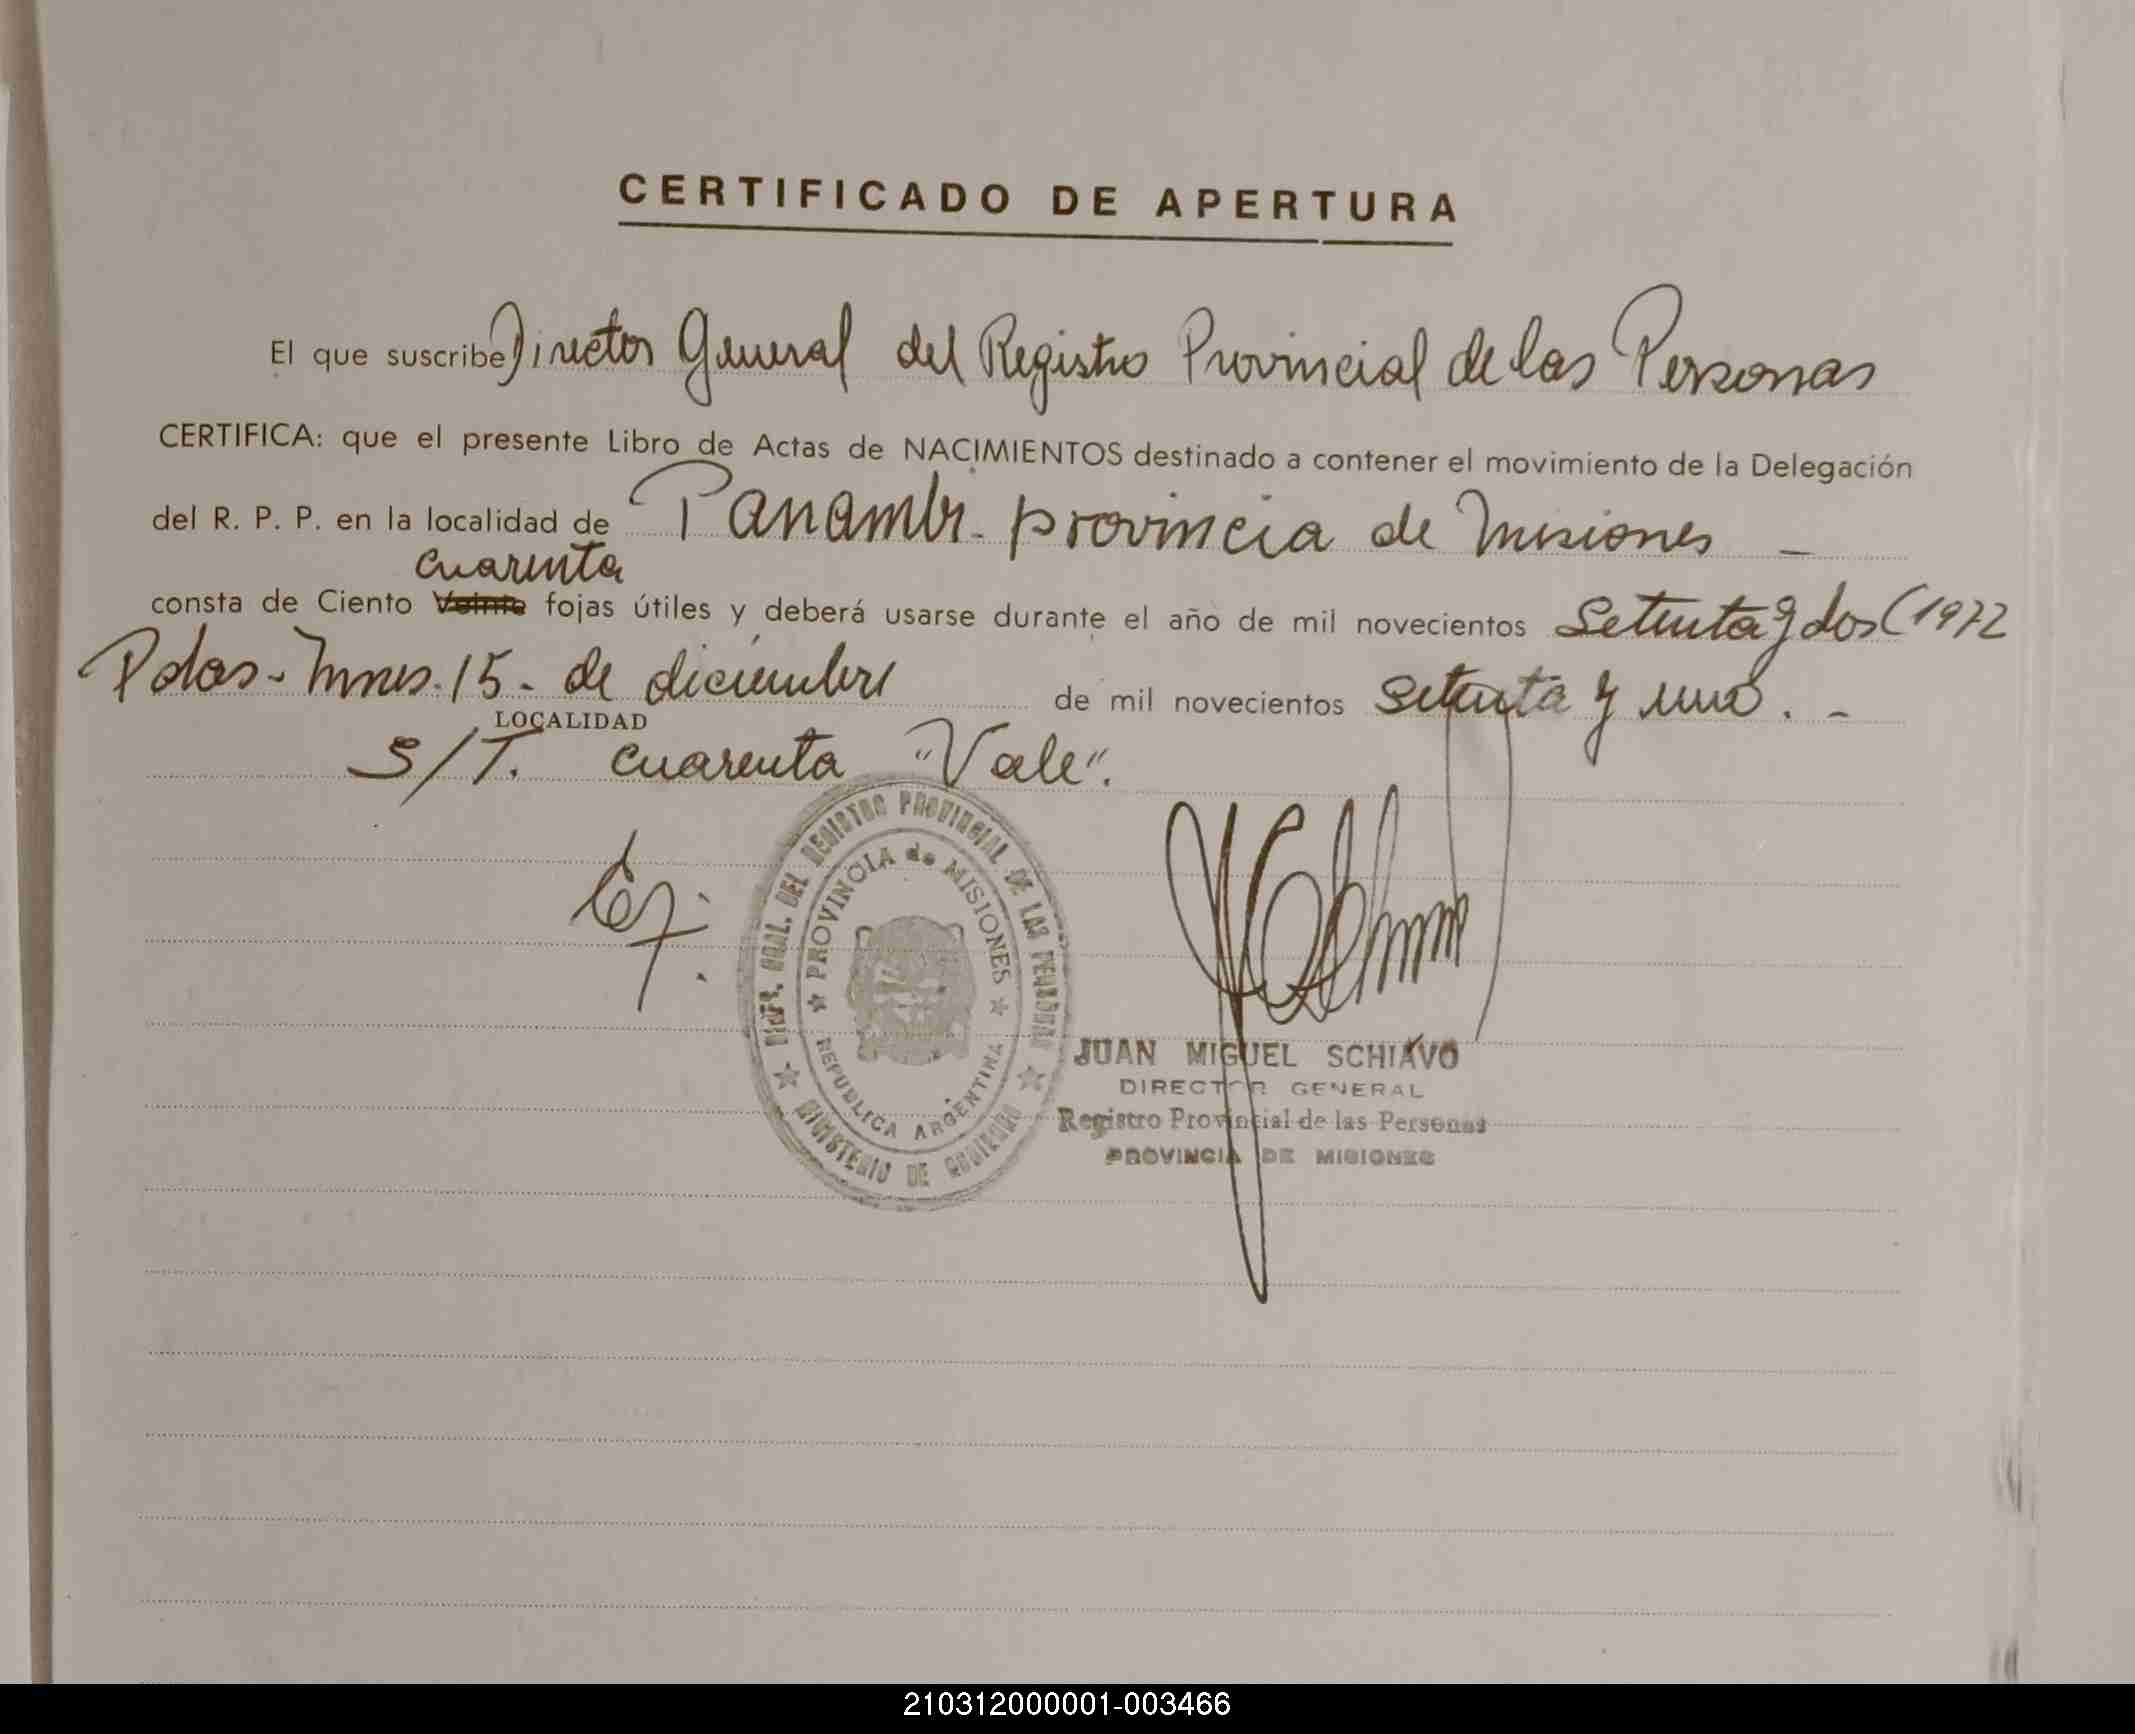 CERTIFICADO DE APERTURA
El que suscribe Director General del Registro Provincial de las Personas
CERTIFICA: que el presente Libro de Actas de NACIMIENTOS destinado a contener el movimiento de la Delegación
del R. P. P. en la localidad de Panambi - provincia de Misiones -
cuarenta
consta de Ciento Veinte fojas útiles y deberá usarse durante el año de mil novecientos setenta y dos (1972
Pdas - Mnes. 15 - de diciembre de mil novecientos setenta y uno . -
LOCALIDAD
S/T. cuarenta "Vale".
DIRE. GRAL. DEL REGISTRO PROVINCIAL DE LAS PERSONAS
PROVINCIA de MISIONES
REPUBLICA ARGENTINA
MINISTERIO DE GOBIERNO
JUAN MIGUEL SCHIAVO
DIRECTOR GENERAL
Registro Provincial de las Personas
PROVINCIA DE MISIONES
210312000001-003466